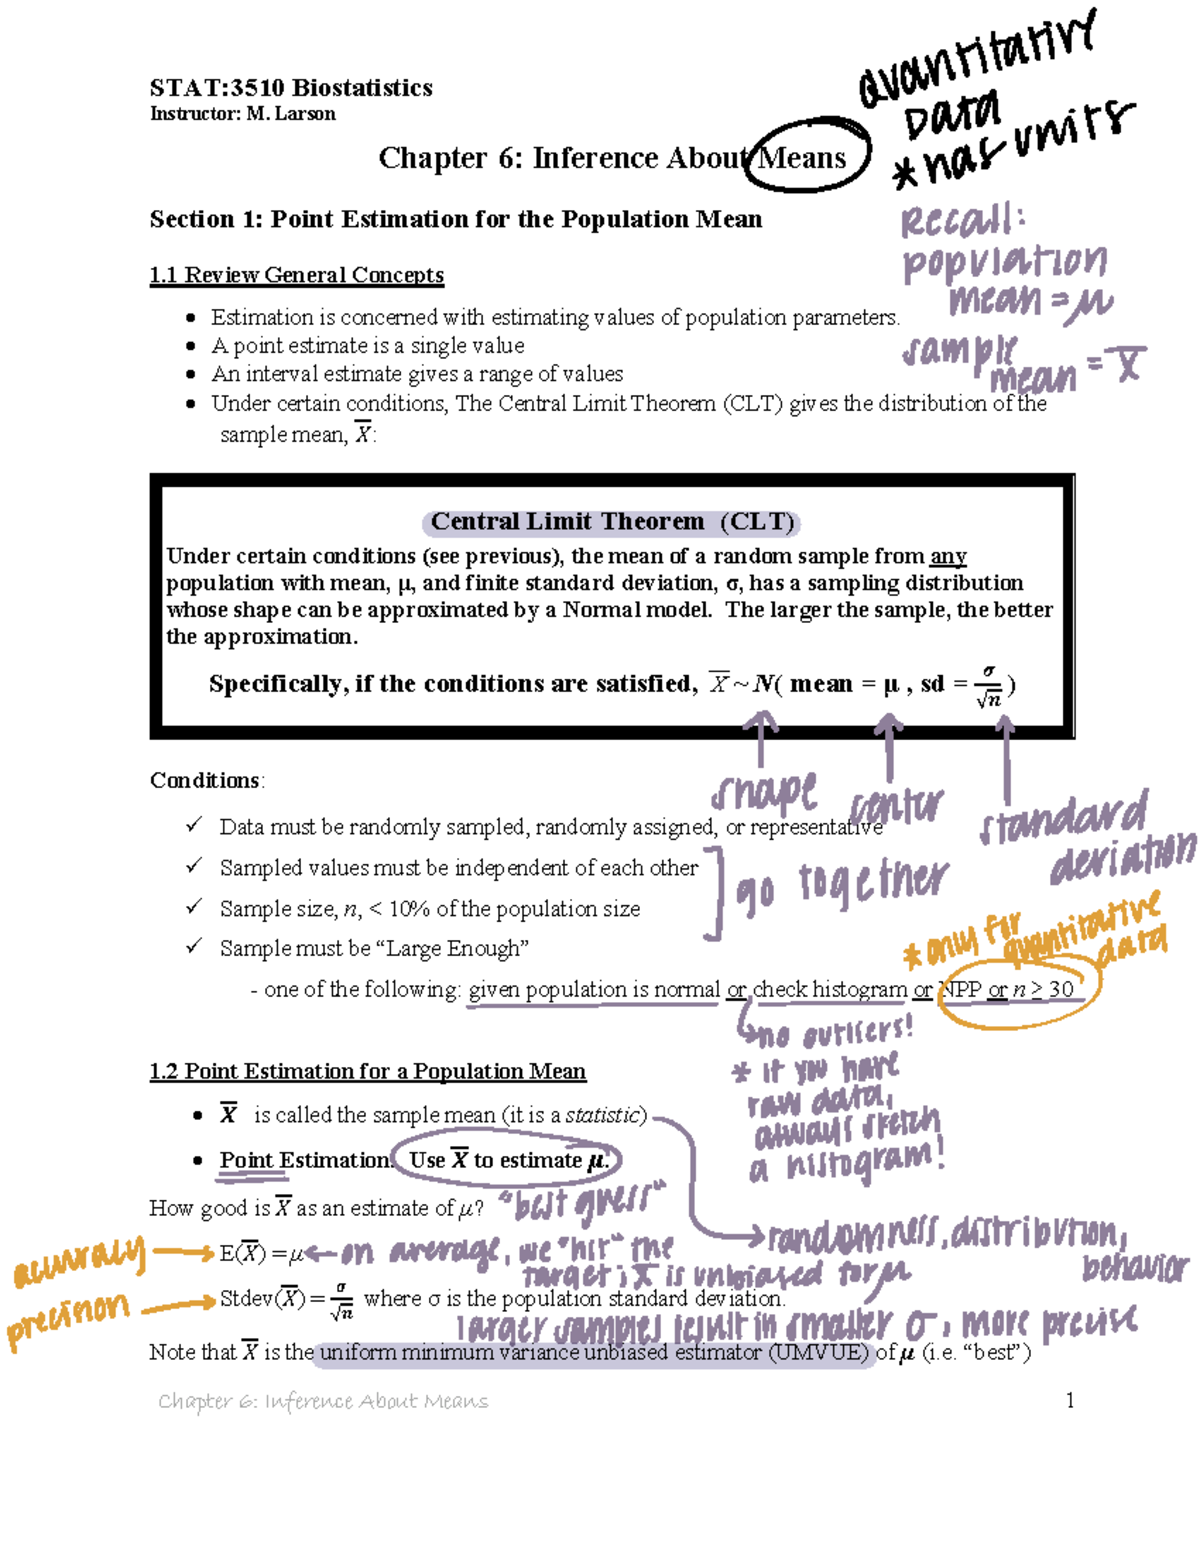 quantitative
data
* has units
STAT:3510 Biostatistics
Instructor: M. Larson
Chapter 6: Inference About Means
Section 1: Point Estimation for the Population Mean
Recall:
population
mean = μ
sample
mean = X̅
1.1 Review General Concepts
• Estimation is concerned with estimating values of population parameters.
• A point estimate is a single value
• An interval estimate gives a range of values
• Under certain conditions, The Central Limit Theorem (CLT) gives the distribution of the
sample mean, X̅:
Central Limit Theorem (CLT)
Under certain conditions (see previous), the mean of a random sample from any
population with mean, μ, and finite standard deviation, σ, has a sampling distribution
whose shape can be approximated by a Normal model. The larger the sample, the better
the approximation.
Specifically, if the conditions are satisfied, X̅ ~ N( mean = μ , sd = σ/√n )
shape
center
standard
deviation
Conditions:
✓ Data must be randomly sampled, randomly assigned, or representative
✓ Sampled values must be independent of each other
✓ Sample size, n, < 10% of the population size
go together
✓ Sample must be “Large Enough”
* only for
quantitative
data
- one of the following: given population is normal or check histogram or NPP or n ≥ 30
no outliers!
* if you have
raw data,
always sketch
a histogram!
1.2 Point Estimation for a Population Mean
• X̅ is called the sample mean (it is a statistic)
→ randomness, distribution,
behavior
• Point Estimation: Use X̅ to estimate μ.
How good is X̅ as an estimate of μ?
"best guess"
accuracy → E(X̅) = μ ← on average, we "hit" the
target; X̅ is unbiased for μ
precision → Stdev(X̅) = σ/√n where σ is the population standard deviation.
larger samples result in smaller σ, more precise
Note that X̅ is the uniform minimum variance unbiased estimator (UMVUE) of μ (i.e. “best”)
Chapter 6: Inference About Means
1